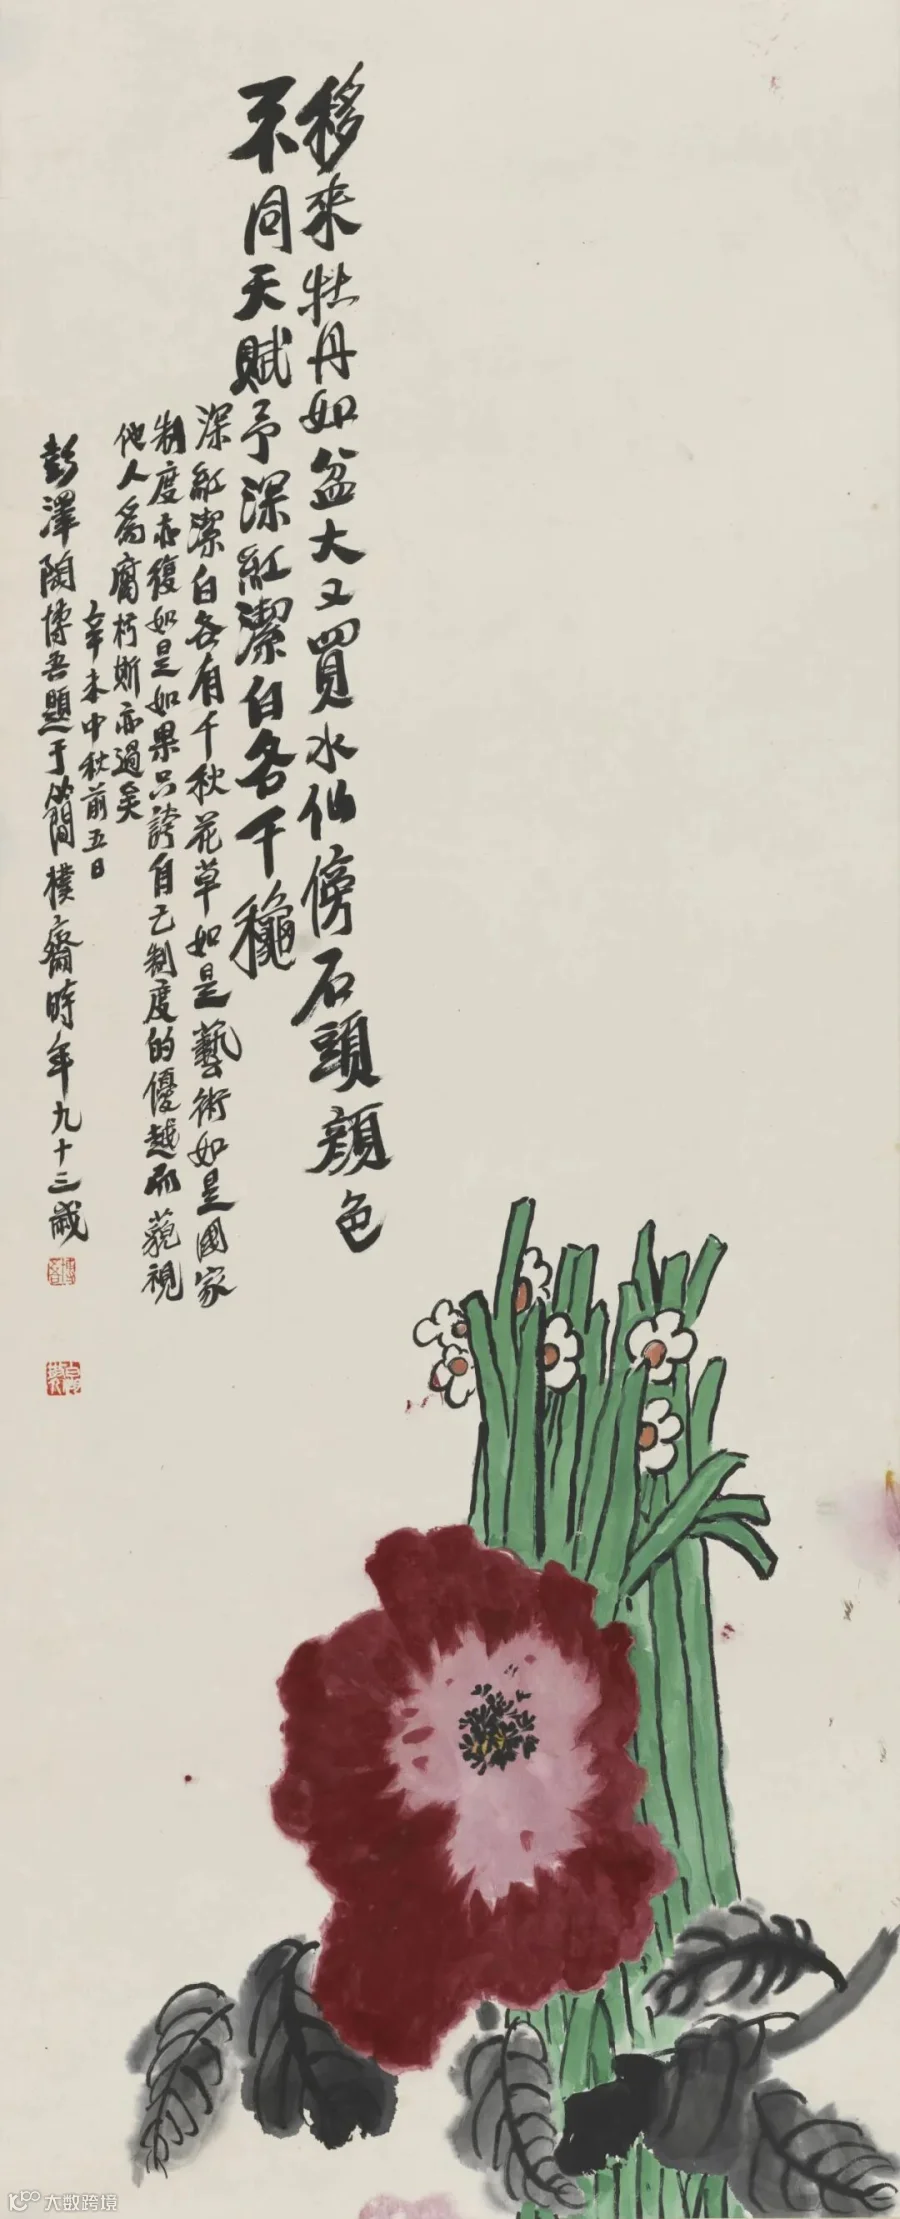 移來牡丹如盆大又買水仙傍石頭顏色
不同天賦予深紅潔白各千龝
深紅潔白各有千秋花草如是藝術如是國家
制度亦復如是如果只誇自己制度的優越而藐視
他人為腐朽斯亦過矣
辛未中秋前五日
彭澤陶博吾題于簡樸齋時年九十三歲
大数跨境